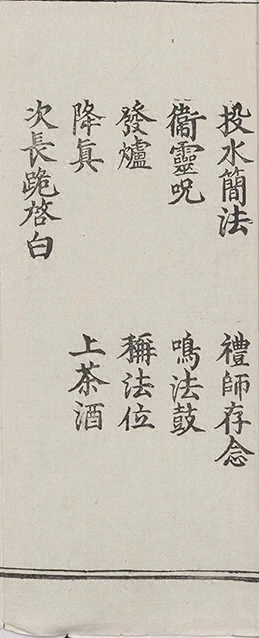 投水簡法　禮師存念
衞靈呪　鳴法鼓
發爐　稱法位
降眞　上茶酒
次長跪啓白